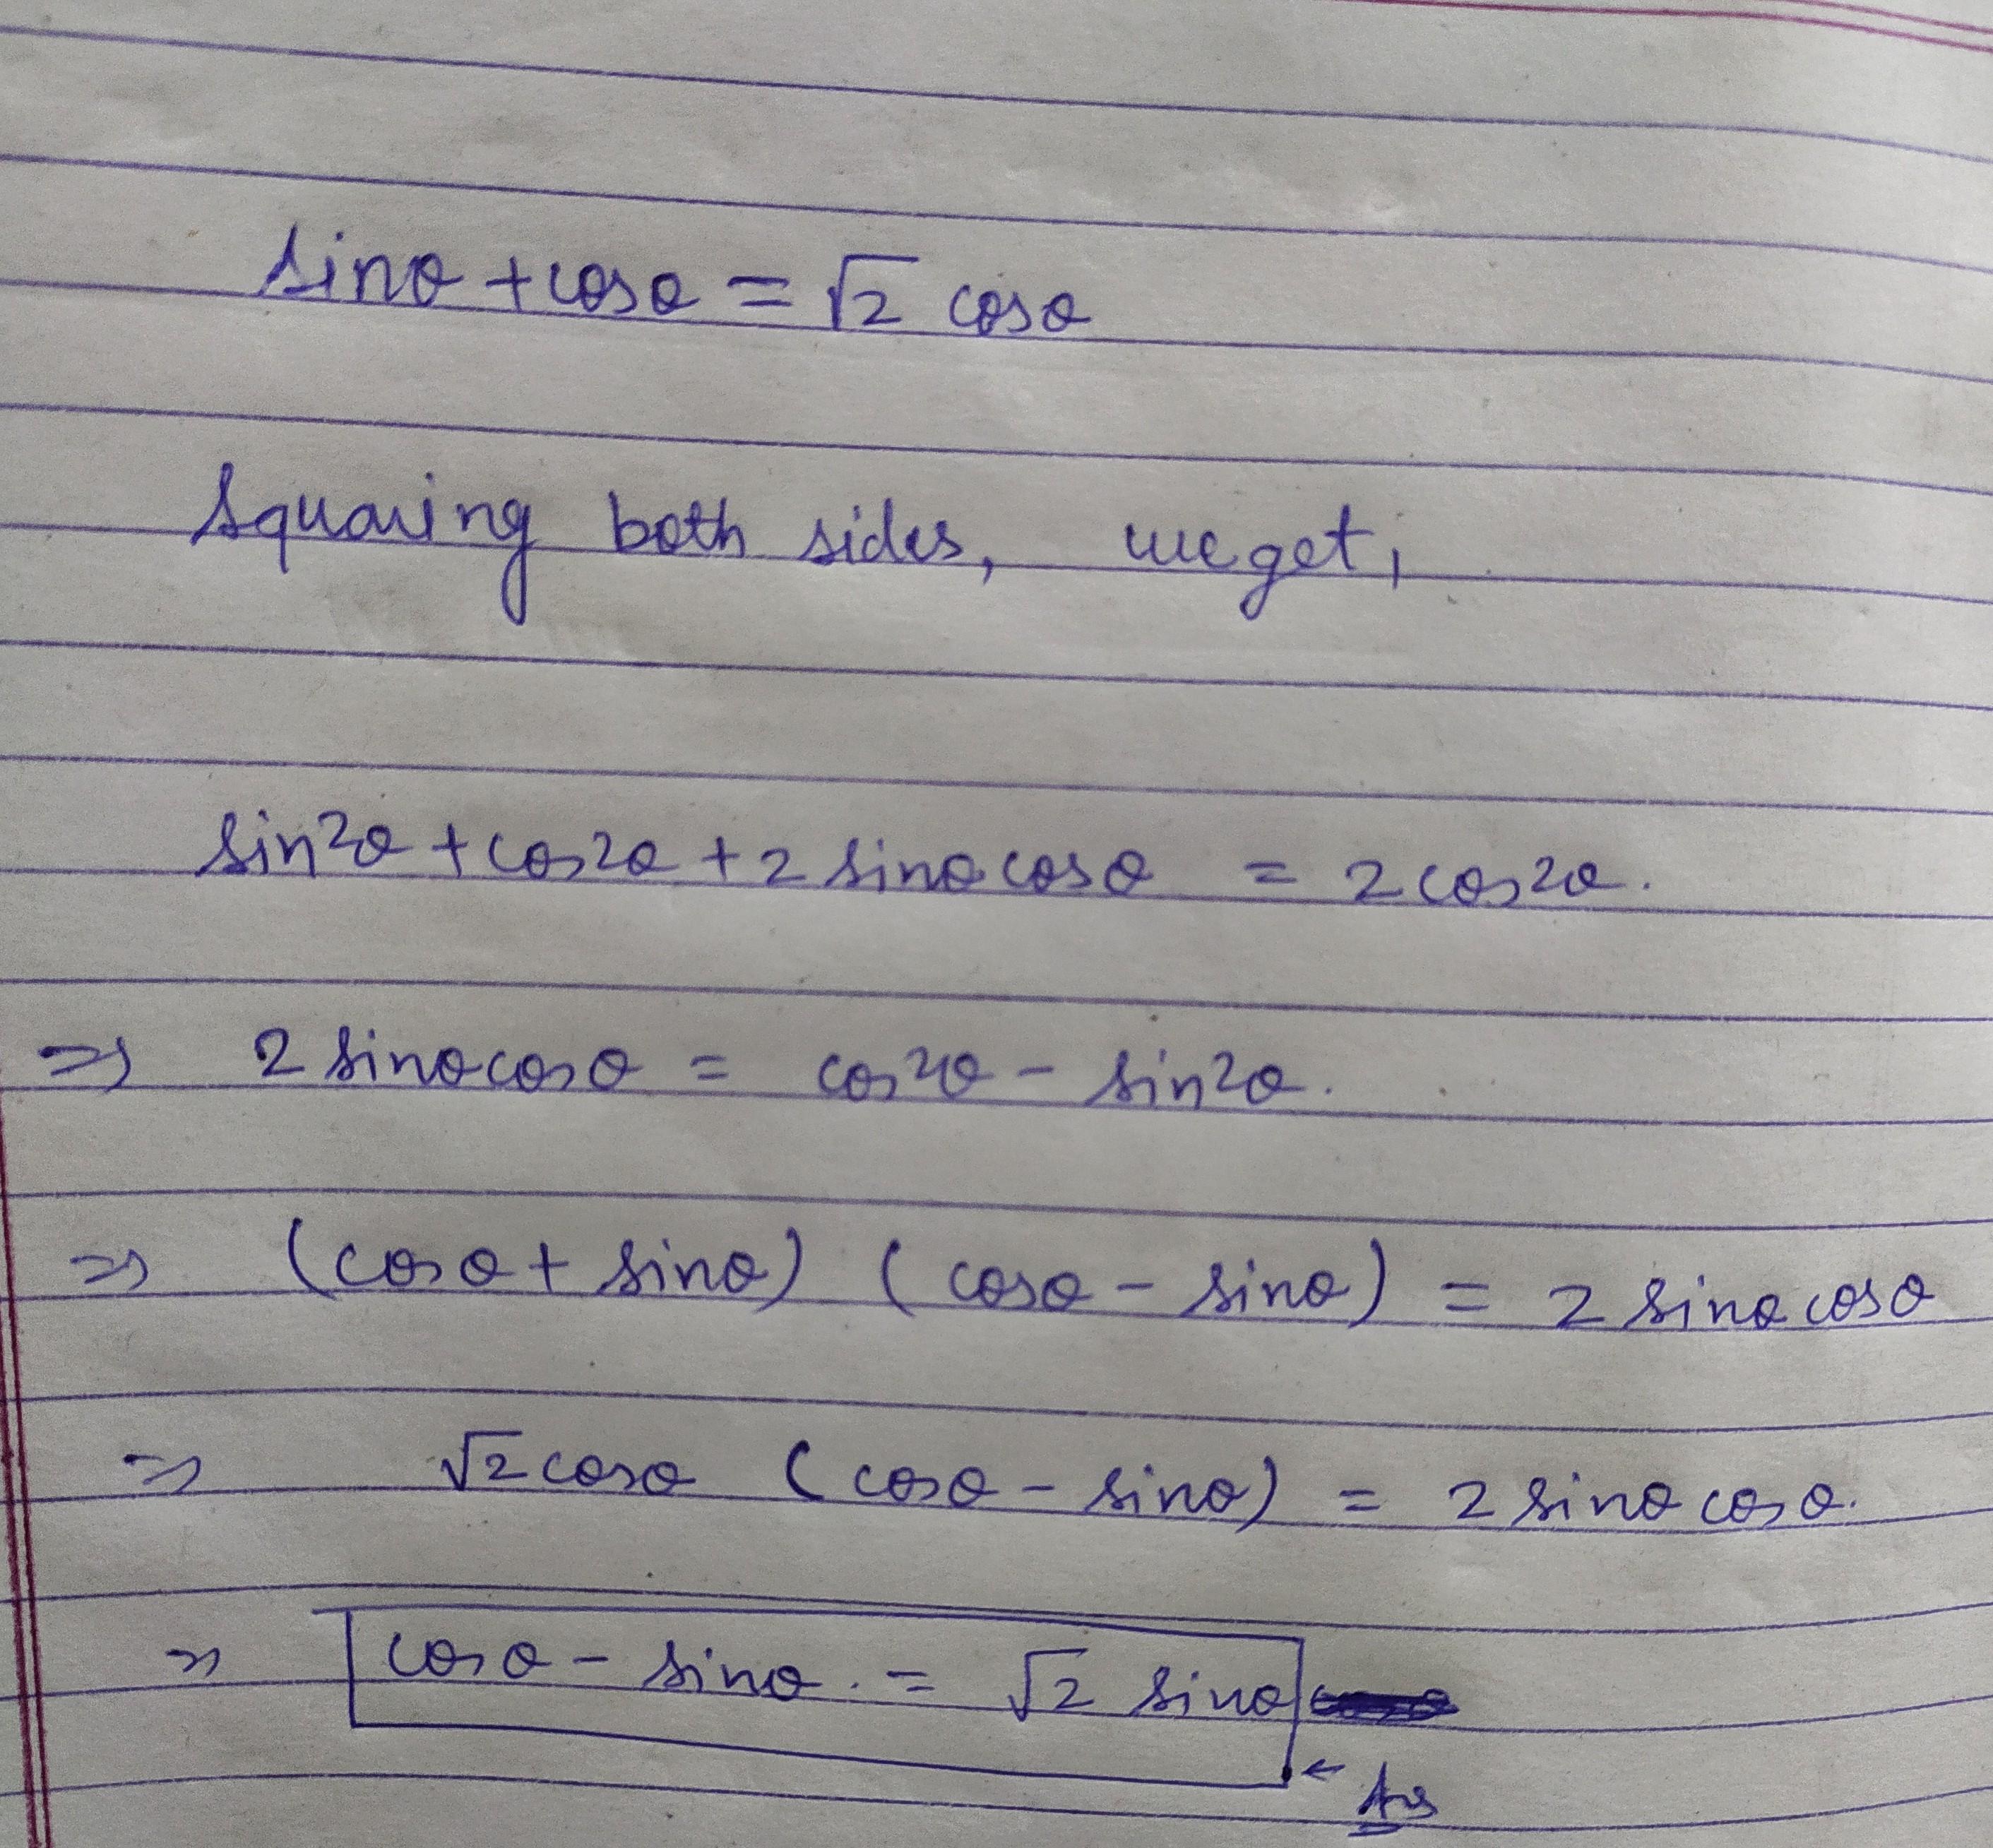 sinθ + cosθ = √2 cosθ
Squaring both sides, we get,
sin²θ + cos²θ + 2 sinθ cosθ = 2 cos²θ.
⇒ 2 sinθ cosθ = cos²θ - sin²θ.
⇒ (cosθ + sinθ) (cosθ - sinθ) = 2 sinθ cosθ
⇒ √2 cosθ (cosθ - sinθ) = 2 sinθ cosθ.
⇒ cosθ - sinθ. = √2 sinθ
← Ans